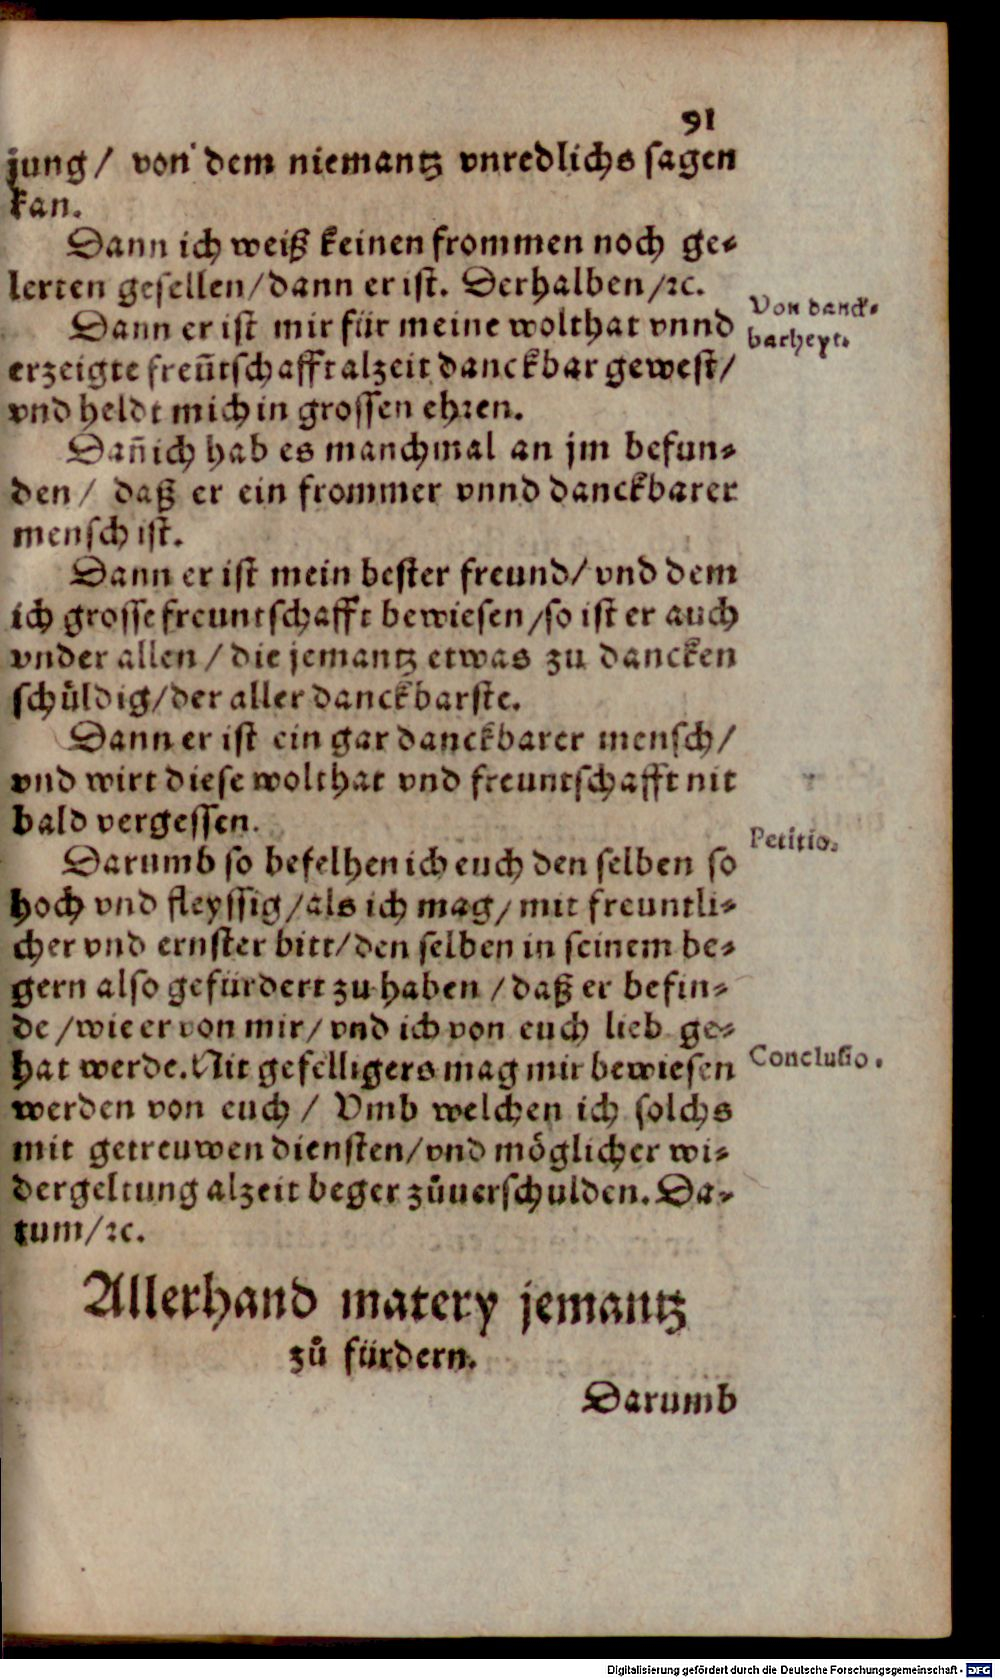 91
jung / von dem niemantz vnredlichs sagen
kan.
Dann ich weiß keinen frommen noch ge-
lerten gesellen / dann er ist. Derhalben / ꝛc.
Von danck-
barheyt.
Dann er ist mir für meine wolthat vnnd
erzeigte freūtschafft alzeit danckbar gewest /
vnd heldt mich in grossen ehren.
Dañ ich hab es manchmal an jm befun-
den / daß er ein frommer vnnd danckbarer
mensch ist.
Dann er ist mein bester freund / vnd dem
ich grosse freuntschafft bewiesen / so ist er auch
vnder allen / die jemantz etwas zu dancken
schüldig / der aller danckbarste.
Dann er ist ein gar danckbarer mensch /
vnd wirt diese wolthat vnd freuntschafft nit
bald vergessen.
Petitio.
Darumb so befelhen ich euch den selben so
hoch vnd fleyssig / als ich mag / mit freuntli-
cher vnd ernster bitt / den selben in seinem be-
gern also gefürdert zu haben / daß er befin-
de / wie er von mir / vnd ich von euch lieb ge-
hat werde. Nit gefelligers mag mir bewiesen
Conclusio.
werden von euch / Vmb welchen ich solchs
mit getreuwen diensten / vnd möglicher wi-
dergeltung alzeit beger zůuerschulden. Da-
tum / ꝛc.
Allerhand matery jemantz
zů fürdern.
Darumb
Digitalisierung gefördert durch die Deutsche Forschungsgemeinschaft - DFG